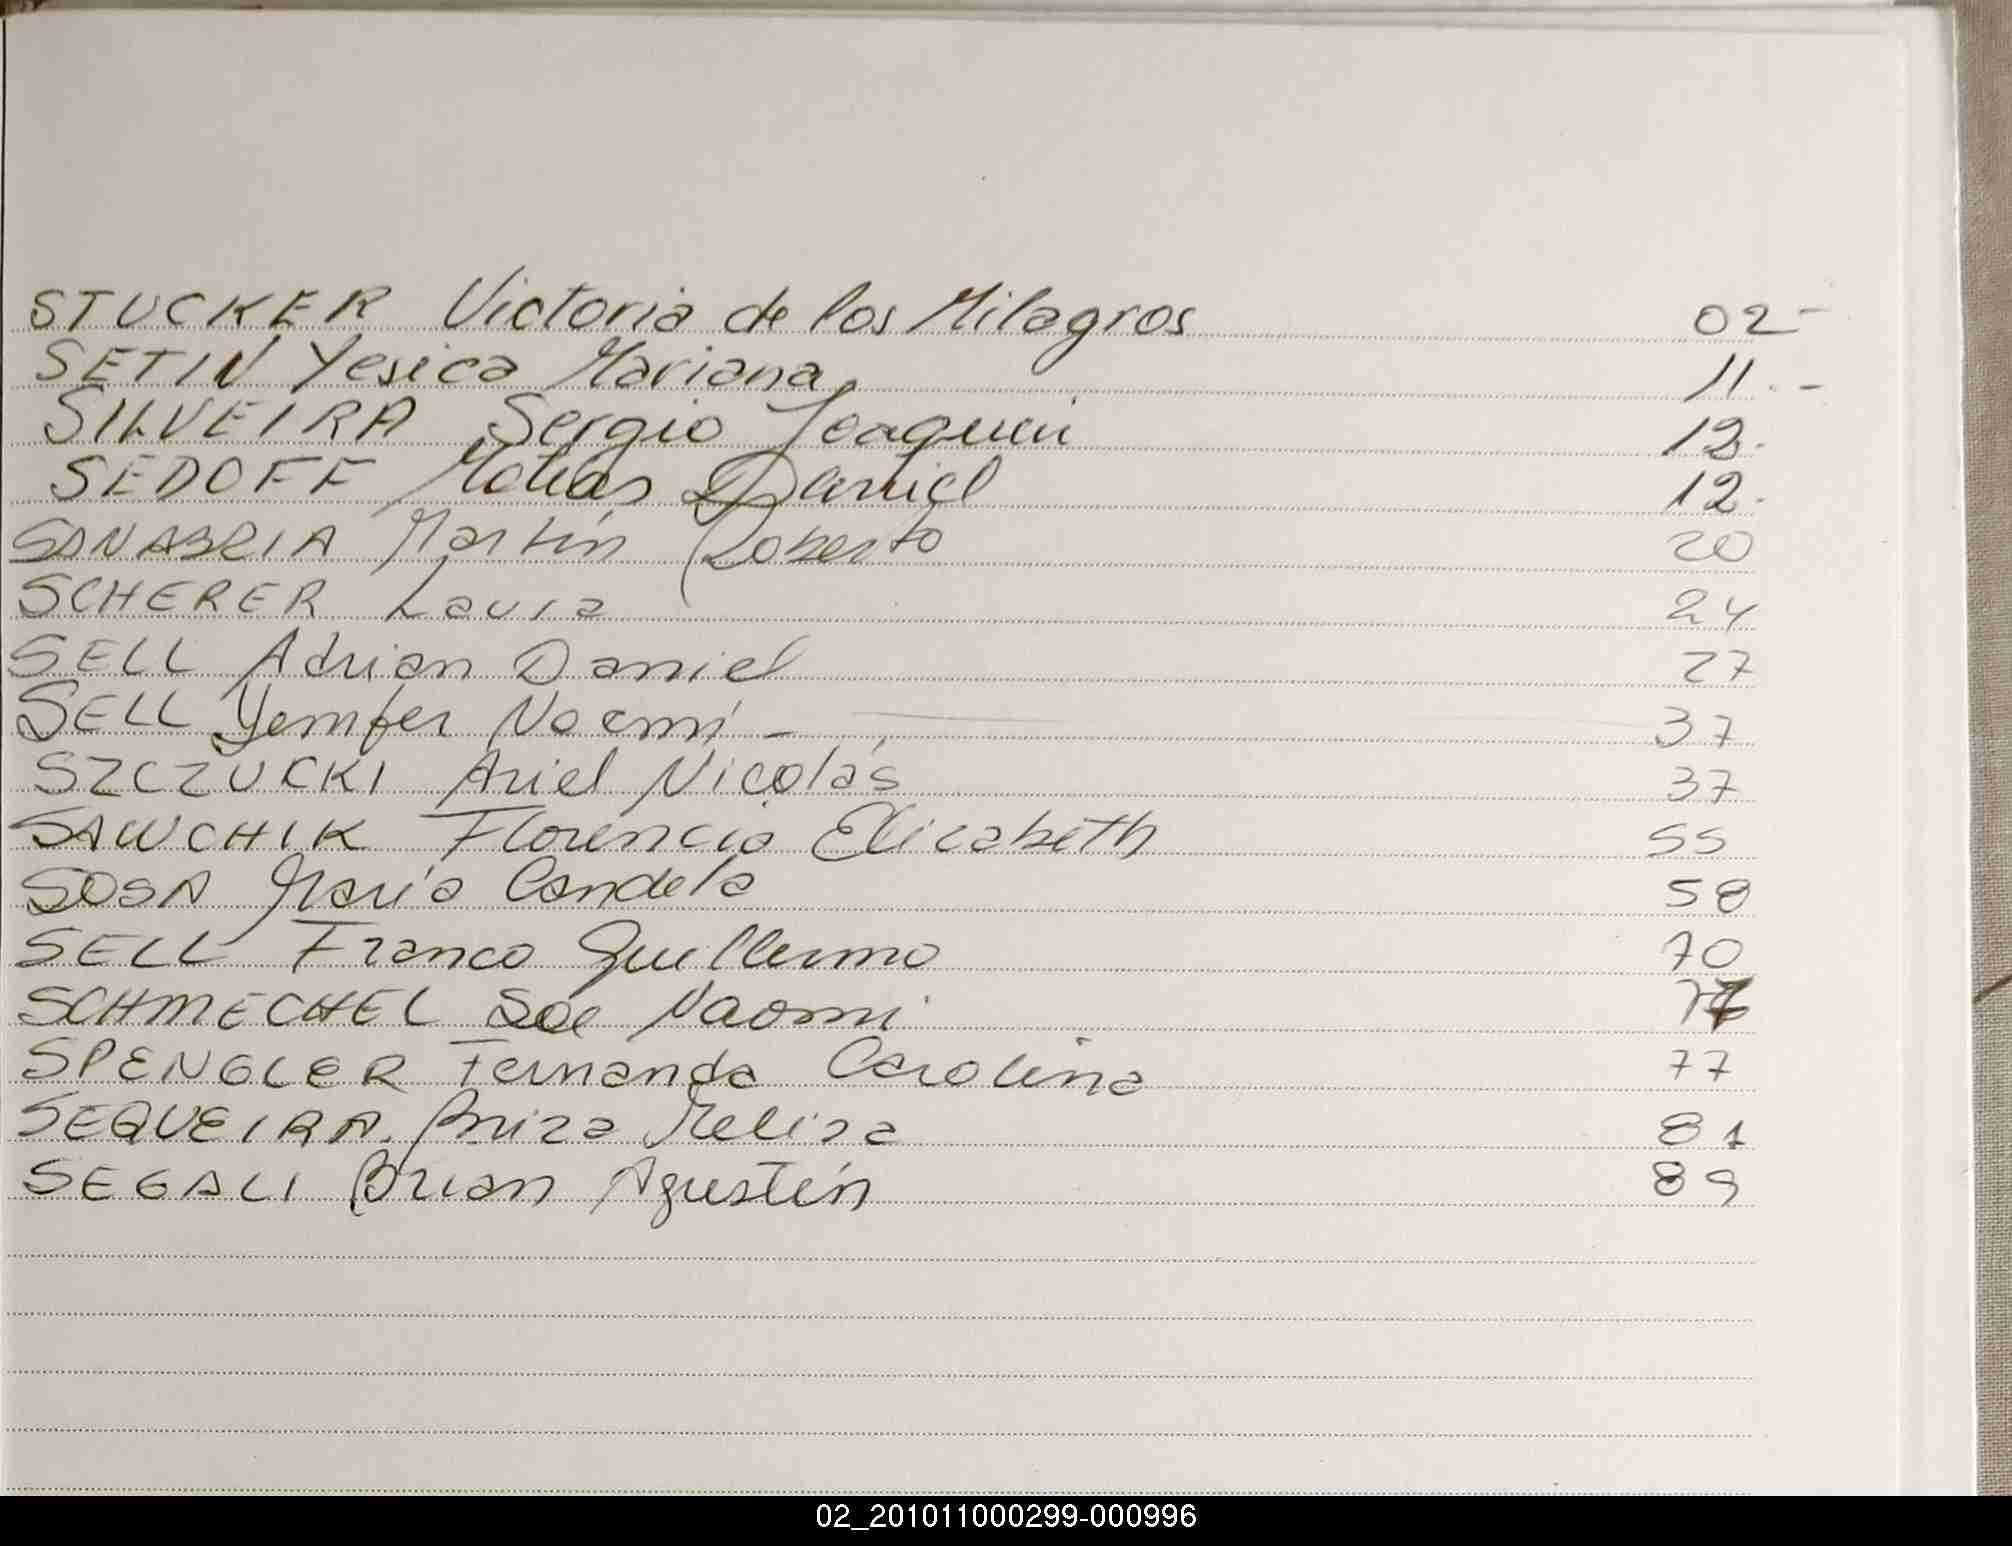 STUCKER Victoria de los Milagros 02-
SETIN Yesica Mariana 11.-
SILVEIRA Sergio Joaquin 12.
SEDOFF Matías Daniel 12.
SANABRIA Martín Roberto 20
SCHERER Laura 24
SELL Adrian Daniel 27
SELL Yenifer Noemí - 37
SZCZUCKI Ariel Nicolás 37
SAWCHIK Florencia Elizabeth 55
SOSA María Candela 58
SELL Franco Guillermo 70
SCHMECHEL Naomi
SPENGLER Fernanda Carolina 77
SEQUEIRA. Briza Meliza 81
SEGALI Brian Agustín 89
02_201011000299-000996